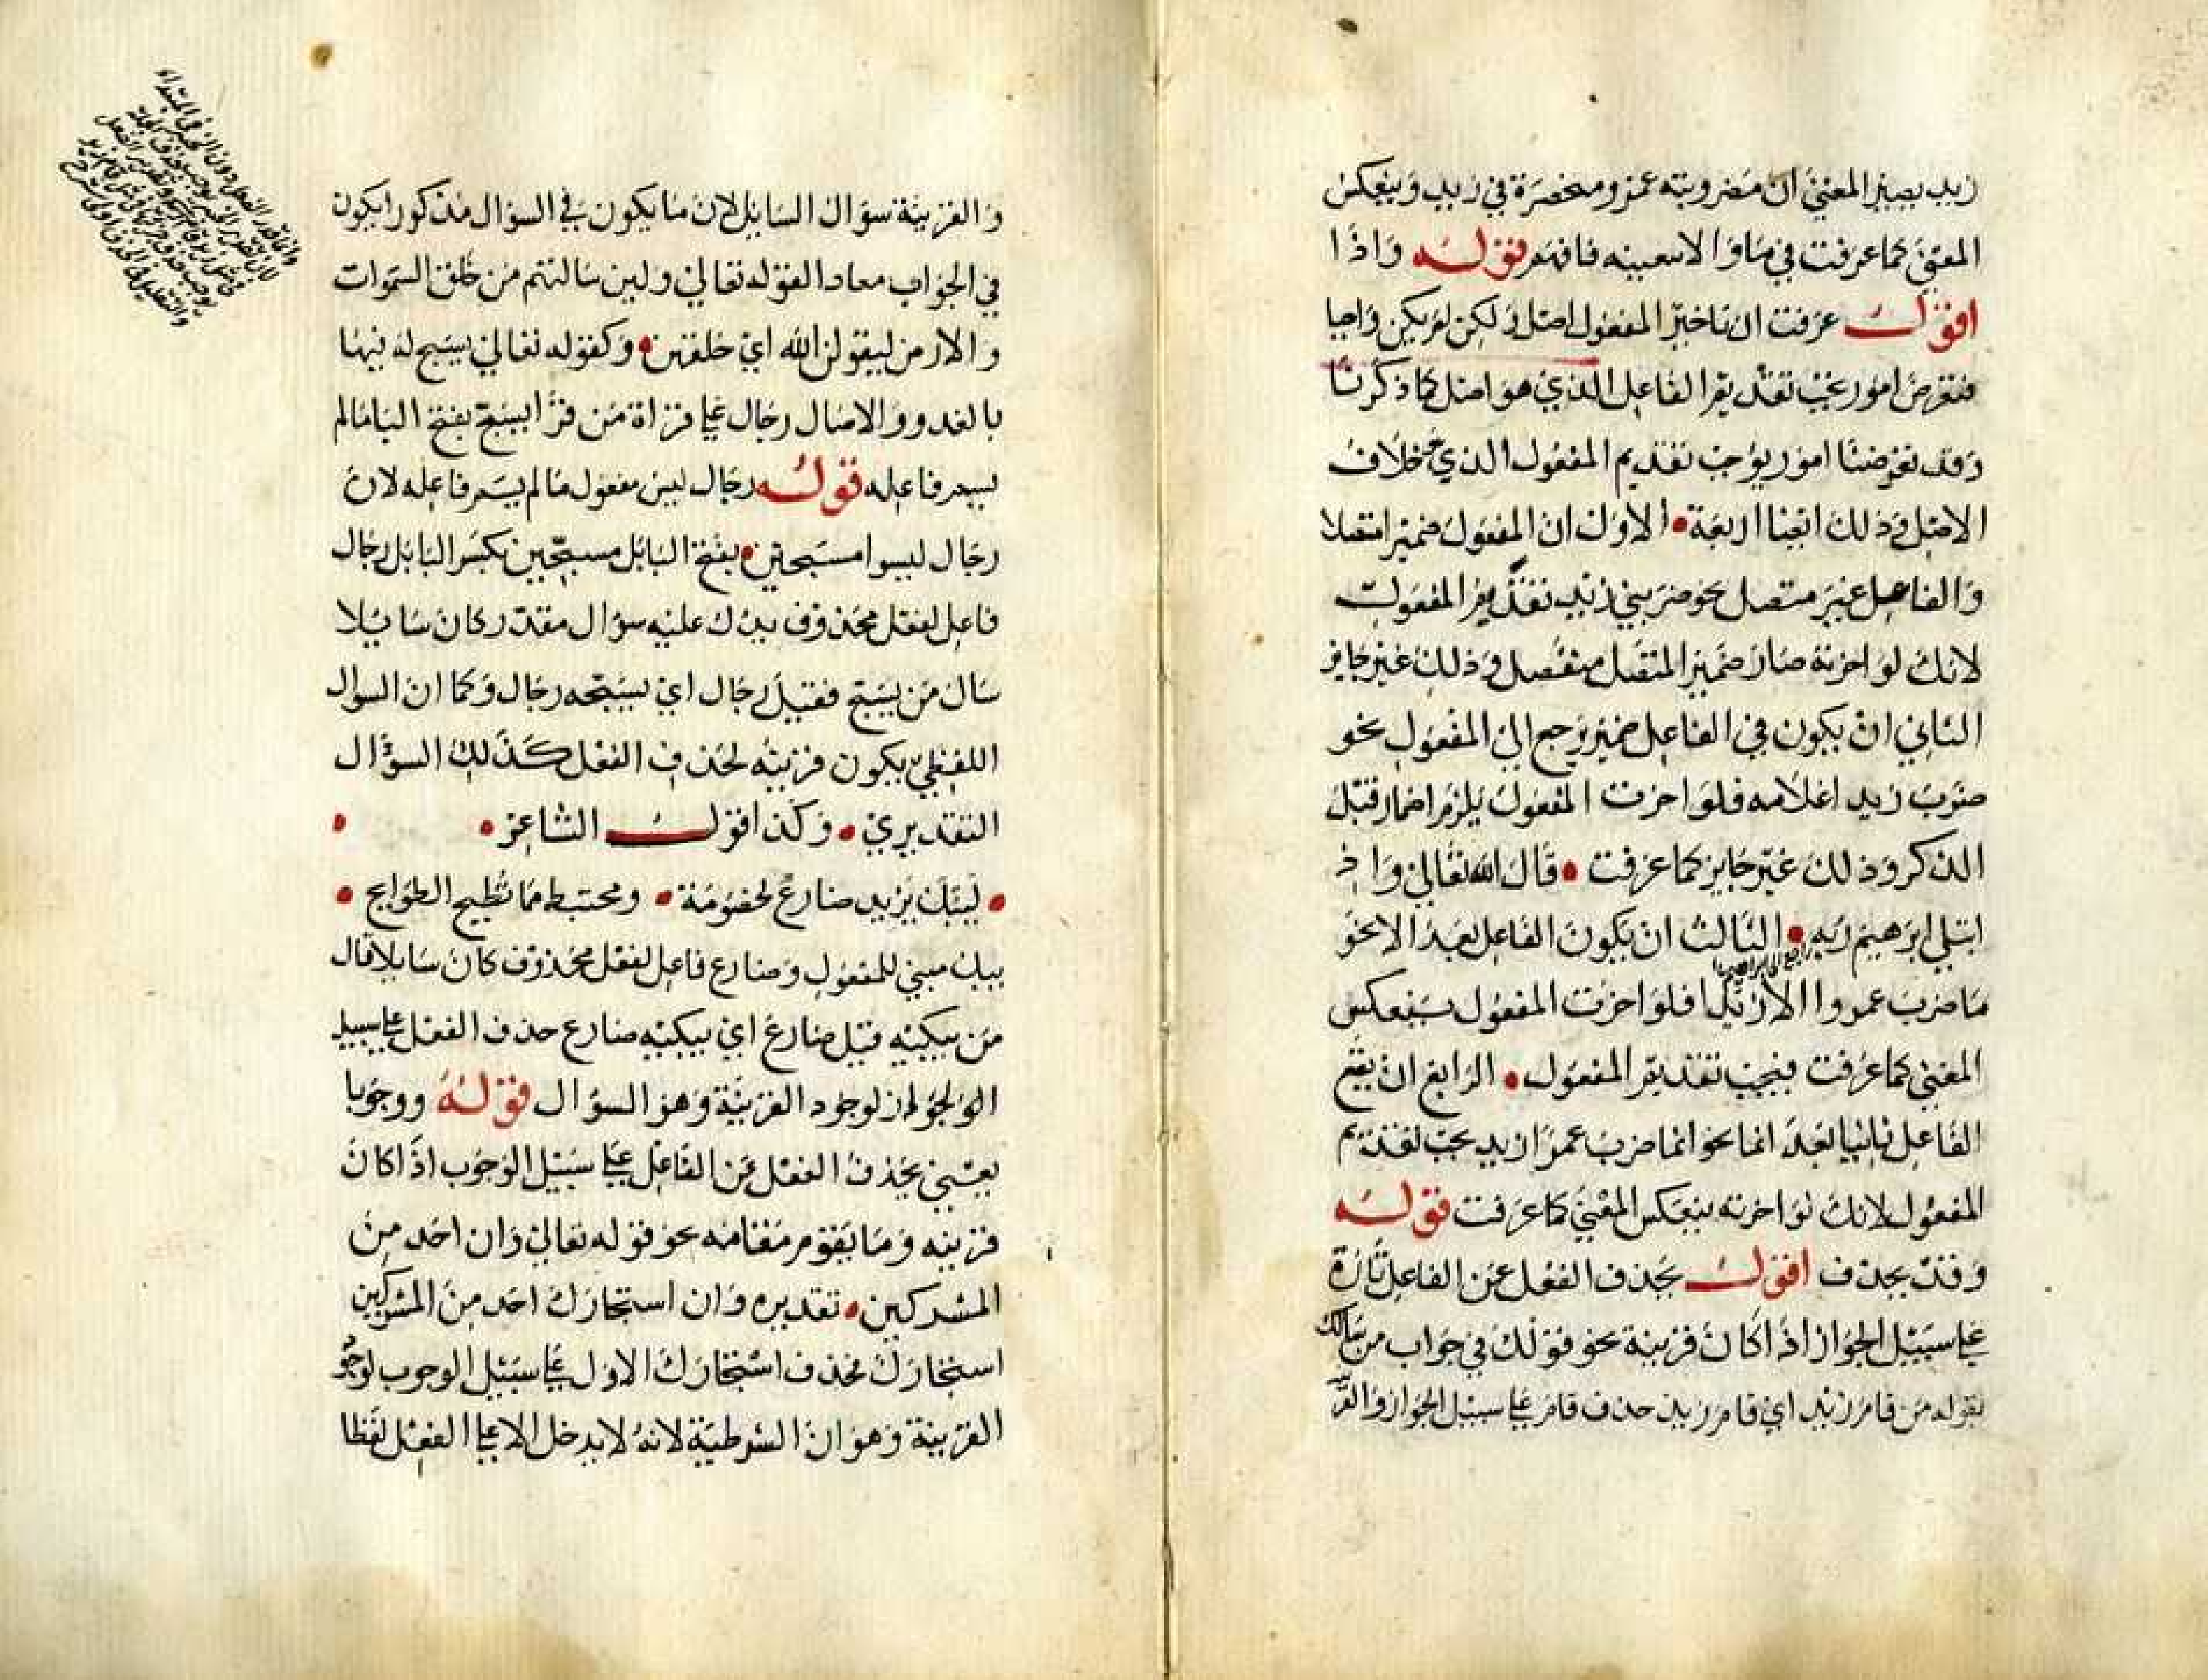 زيد يصير المعني ان مضروبته عمرو منحصرة في زيد وينعكس
المعني كما عرفت في ما والا بعينه فافهم قوله واذا
اقول عرفت ان تاخير المفعول اصل ولكن لم يكن واجبا
فتعرض امور يجب تقديم الفاعل الذي هو اصل كما ذكرنا
وقد تعرضنا امور يوجب تقديم المفعول الذي خلاف
الاصل وذلك ايضا اربعة الاول ان المفعول ضميرا متصلا
والفاعل غير متصل نحو ضربني زيد تقديم المفعول
لانك لو اخرته صار ضمير المتصل منفصل وذلك غير جايز
الثاني ان يكون في الفاعل ضمير يرجع الي المفعول نحو
ضرب زيد اغلامه فلو اخرت المفعول يلزم اضمار قبل
الذكر وذلك غير جايز كما عرفت قال الله تعالي واذ
ابتلي ابرهيم ربه الثالث ان يكون الفاعل بعد الا نحو
راجع الي ابراهيم
ما ضرب عمروا الا زيد فلو اخرت المفعول ينعكس
المعني كما عرفت فيجب تقديم المفعول الرابع ان يقع
الفاعل ثانيا بعد انما نحو انما ضرب عمرا زيد يجب تقديم
المفعول لانك لو اخرته ينعكس المعني كما عرفت قوله
وقد يحذف اقول يحذف الفعل عن الفاعل تارة
علي سبيل الجواز اذا كان قرينة نحو قولك في جواب من سالك
بقوله من قام زيد اي قام زيد حذف قام علي سبيل الجواز والقر
والقرينة سؤال السايل لان ما يكون في السؤال مذكور ايكون
في الجواب معادا لقوله تعالي ولين سالتهم من خلق السموات
والارض ليقولن الله اي خلقهن وكقوله تعالي يسبح له فيها
بالغدو والاصال رجال علي قراة من قرا يسبح بفتح البا ما لم
يسم فاعله قوله رجال ليس مفعول ما لم يسم فاعله لان
رجال ليسوا مسبحين بفتح البا بل مسبحين بكسر البا بل رجال
فاعل لفعل محذوف يدل عليه سؤال مقدر كان سايلا
سال من يسبح فقيل رجال اي يسبحه رجال وكما ان السوال
اللفظي يكون قرينه لحذف الفعل كذلك السؤال
التقديري وكذا قول الشاعر
لبيك يزيد ضارع لخصومة ومختبط مما تطيح الطوايح
يبك مبني للمفعول وضارع فاعل لفعل محذوف كان سايلا قال
من يبكيه قيل ضارع اي يبكيه ضارع حذف الفعل علي سبيل
الجواز لوجود القرينة وهو السؤال قوله ووجوبا
يعني يحذف الفعل عن الفاعل علي سبيل الوجوب اذا كان
قرينه وما يقوم مقامه نحو قوله تعالي وان احد من
المشركين تقديره وان استجارك احد من المشركين
استجارك فحذف استجارك الاول علي سبيل الوجوب لوجو
القرينة وهو ان الشرطية لانه لا يدخل الا علي الفعل لفظا